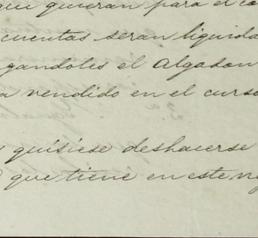 quieran para el co
cuentas seran liquida
gandoles el Algodon
a vendido en el curso
quisiese deshacerse
que tiene en este